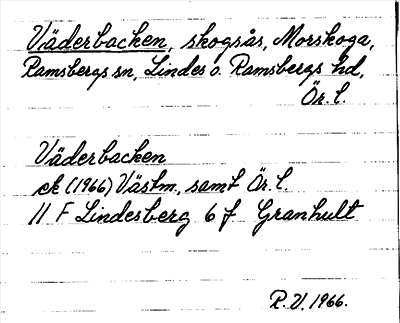 Väderbacken, skogsås, Morskoga,
Ramsbergs sn, Lindes o. Ramsbergs hd,
Ör. l.
Väderbacken
ek (1966) Västm. samt Ör. l.
11 F Lindesberg 6 f Granhult
R. V. 1966.